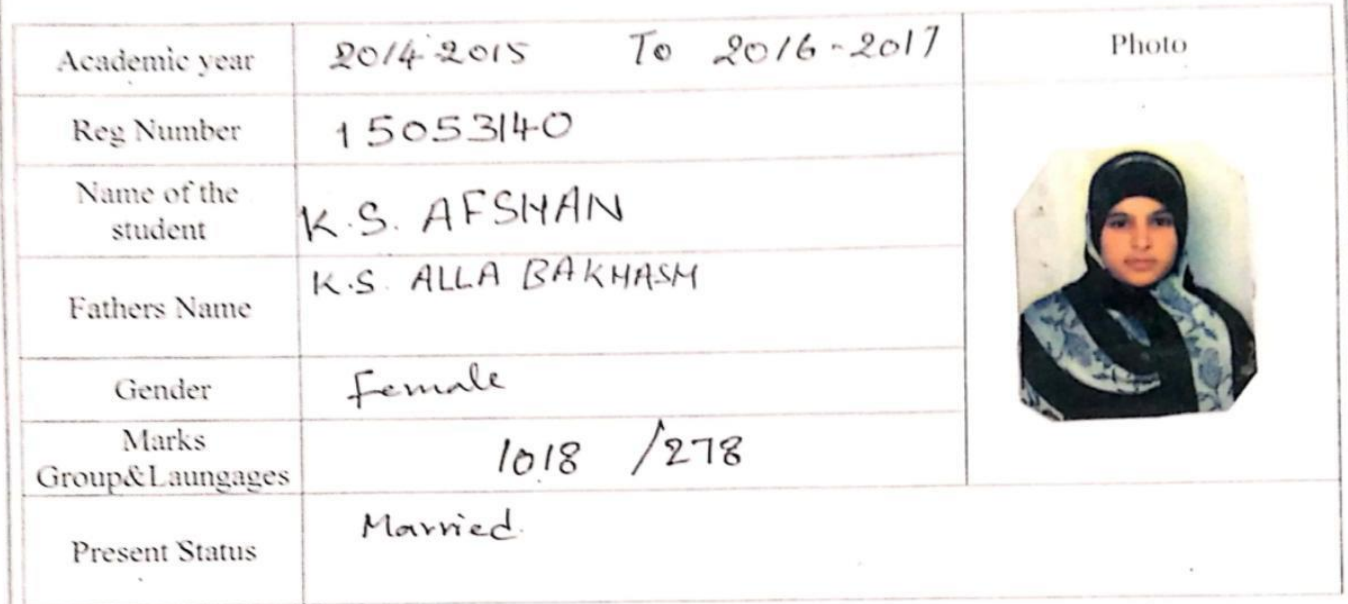 Academic year 2014-2015 To 2016-2017 Photo
Reg Number 15053140
Name of the
student K.S. AFSHAN
Fathers Name K.S. ALLA BAKHASH
Gender Female
Marks
Group&Laungages 1018 /278
Present Status Married.